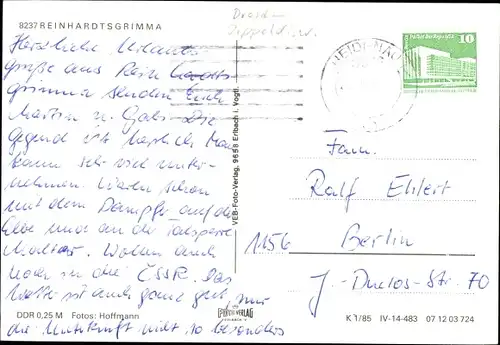 8237 REINHARDTSGRIMMA
Dresd.-
Dippoldisw.
Herzliche Urlaubs-
grüße aus Reinhardts-
grimma senden Euch
Martin u. Gabi. Die
Gegend ist herrlich. Man
kann sehr viel unter-
nehmen. Waren schon
mit dem Dampfer auf der
Elbe und an der Talsperre
Malter. Wollen auch
noch in die ČSSR. Das
Wetter ist auch ganz gut, nur
die Unterkunft nicht so besonders
DDR 0,25 M Fotos: Hoffmann
VEB-Foto-Verlag, 9658 Erlbach i. Vogtl.
FOTO-VERLAG
ERLBACH
HEIDENAU
10
Fam.
Ralf Ehlert
1156 Berlin
J.-Duclos-Str. 70
K 1/85 IV-14-483 07 12 03 724